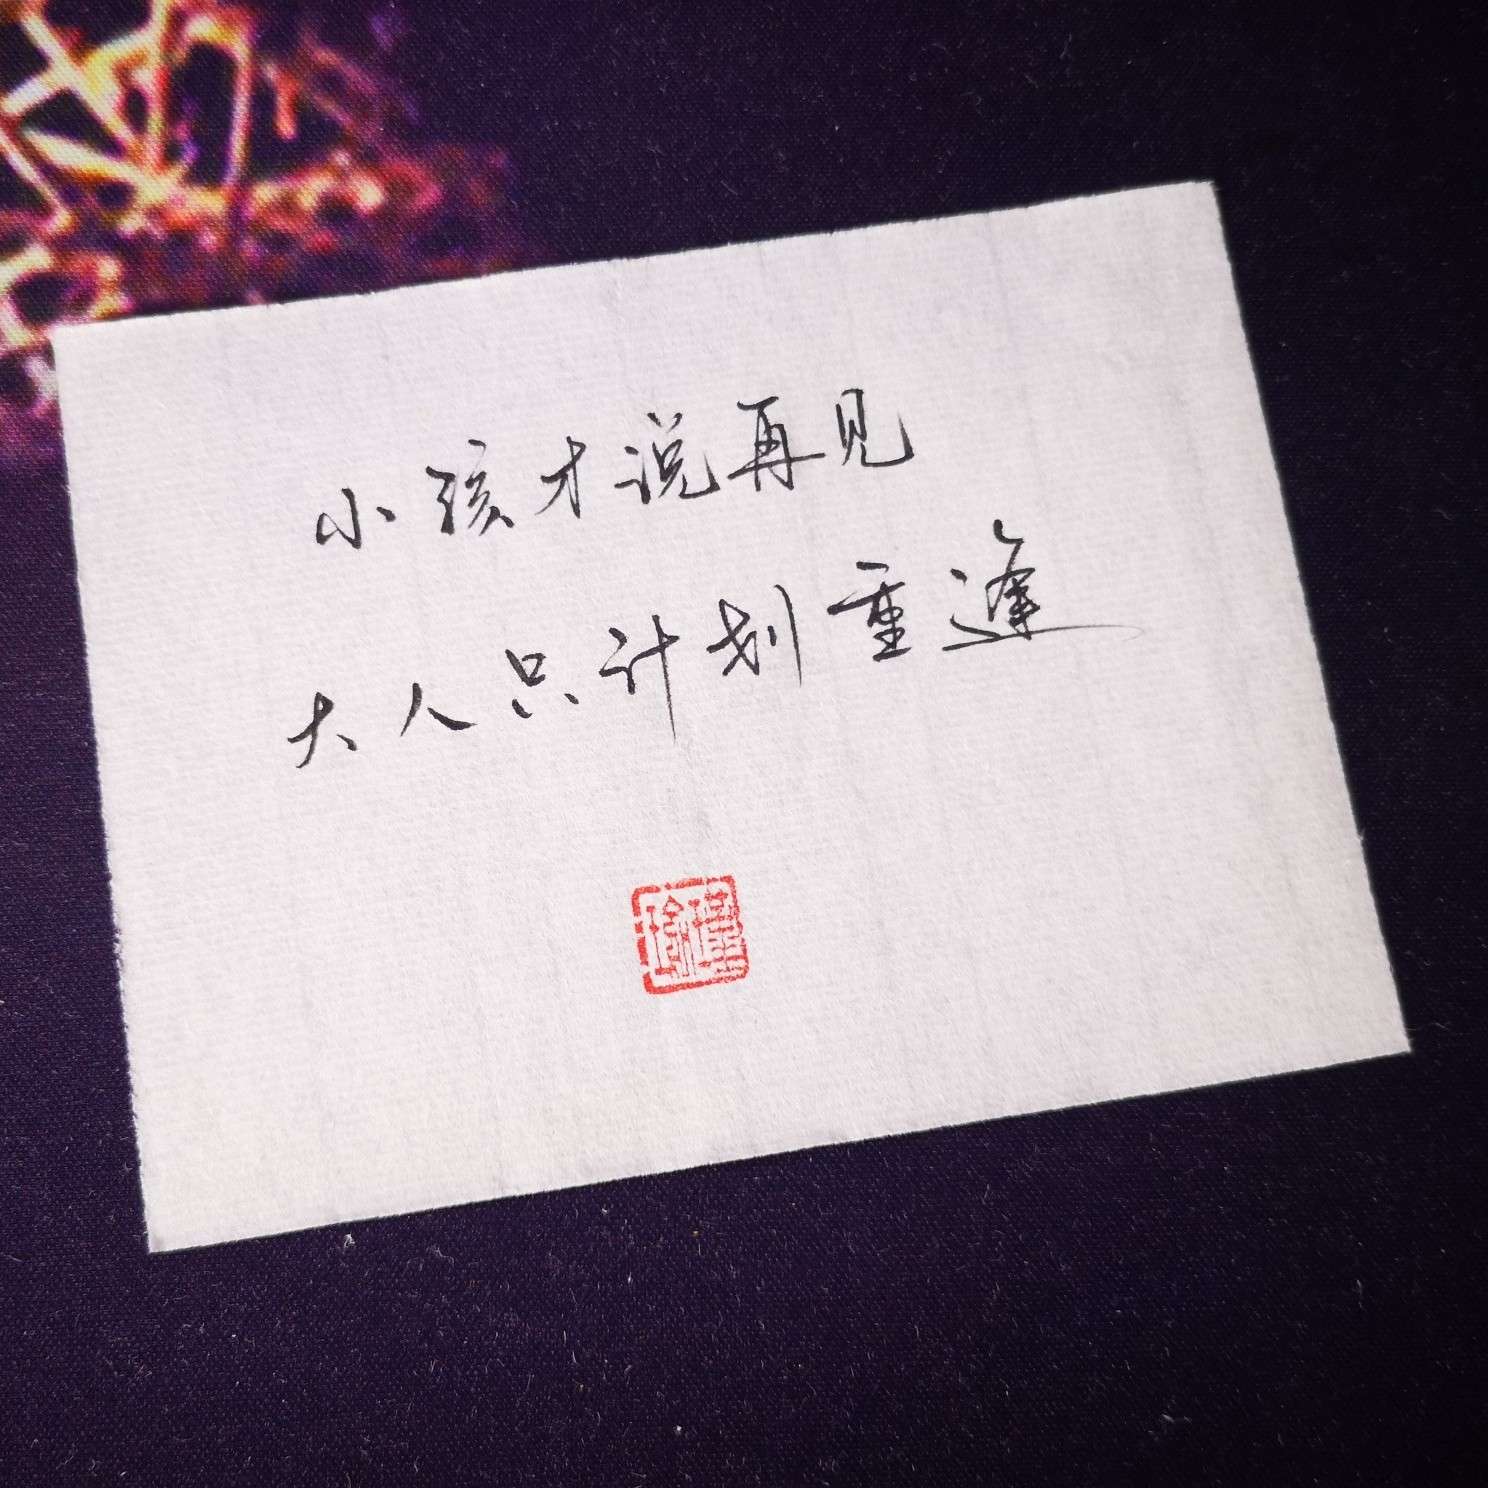 小孩才说再见
大人只计划重逢